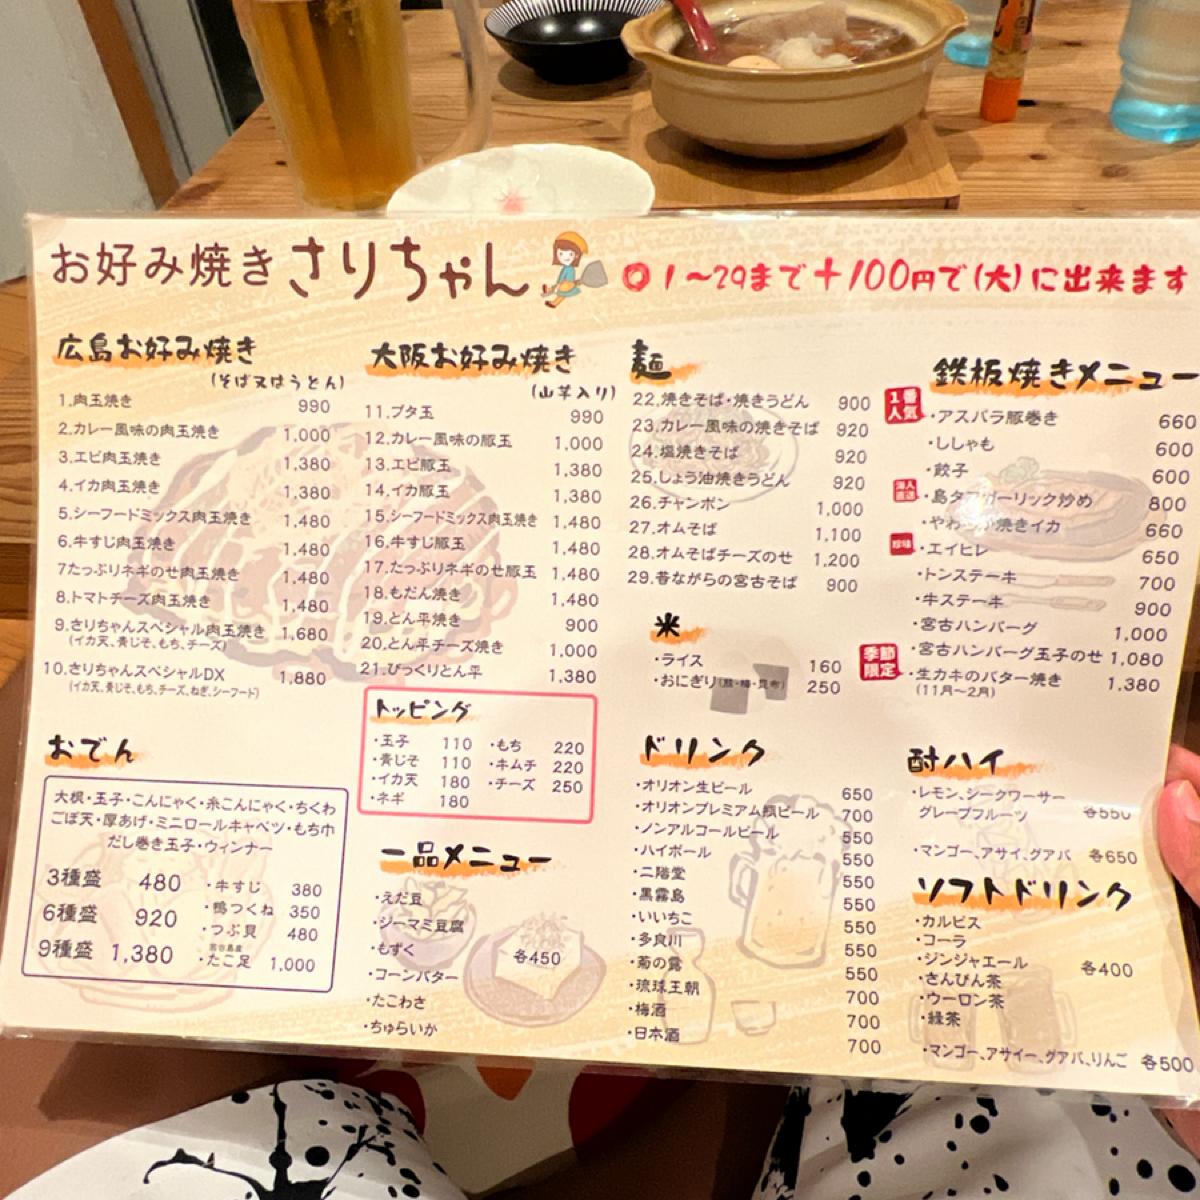 お好み焼き さりちゃん
◎1～29まで＋100円で(大)に出来ます
広島お好み焼き
(そば又はうどん)
1.肉玉焼き 990
2.カレー風味の肉玉焼き 1,000
3.エビ肉玉焼き 1,380
4.イカ肉玉焼き 1,380
5.シーフードミックス肉玉焼き 1,480
6.牛すじ肉玉焼き 1,480
7たっぷりネギのせ肉玉焼き 1,480
8.トマトチーズ肉玉焼き 1,480
9.さりちゃんスペシャル肉玉焼き 1,680
(イカ天、青じそ、もち、チーズ)
10.さりちゃんスペシャルDX 1,880
(イカ天、青じそ、もち、チーズ、ねぎ、シーフード)
おでん
大根・玉子・こんにゃく・糸こんにゃく・ちくわ
ごぼ天・厚あげ・ミニロールキャベツ・もち巾
だし巻き玉子・ウィンナー
3種盛 480
6種盛 920
9種盛 1,380
・牛すじ 380
・鴨つくね 350
・つぶ貝 480
宮古島産
・たこ足 1,000
大阪お好み焼き
(山芋入り)
11.ブタ玉 990
12.カレー風味の豚玉 1,000
13.エビ豚玉 1,380
14.イカ豚玉 1,380
15.シーフードミックス肉玉焼き 1,480
16.牛すじ豚玉 1,480
17.たっぷりネギのせ豚玉 1,480
18.もだん焼き 1,480
19.とん平焼き 900
20.とん平チーズ焼き 1,000
21.びっくりとん平 1,380
トッピング
・玉子 110
・青じそ 110
・イカ天 180
・ネギ 180
・もち 220
・キムチ 220
・チーズ 250
一品メニュー
・えだ豆
・ジーマミ豆腐
・もずく
・コーンバター
・たこわさ
・ちゅらいか
各450
麺
22.焼きそば・焼きうどん 900
23.カレー風味の焼きそば 920
24.塩焼きそば 920
25.しょう油焼きうどん 920
26.チャンポン 1,000
27.オムそば 1,100
28.オムそばチーズのせ 1,200
29.昔ながらの宮古そば 900
米
・ライス 160
・おにぎり(鮭・梅・昆布) 250
ドリンク
・オリオン生ビール 650
・オリオンプレミアム瓶ビール 700
・ノンアルコールビール 550
・ハイボール 550
・二階堂 550
・黒霧島 550
・いいちこ 550
・多良川 550
・菊の露 550
・琉球王朝 700
・梅酒 700
・日本酒 700
鉄板焼きメニュー
1番人気
・アスパラ豚巻き 660
・ししゃも 600
・餃子 600
・島タコガーリック炒め 800
・やわらか焼きイカ 660
珍味
・エイヒレ 650
・トンステーキ 700
・牛ステーキ 900
・宮古ハンバーグ 1,000
・宮古ハンバーグ玉子のせ 1,080
季節限定
・生カキのバター焼き 1,380
(11月～2月)
酎ハイ
・レモン、シークワーサー
グレープフルーツ 各550
・マンゴー、アサイ、グアバ 各650
ソフトドリンク
・カルピス
・コーラ
・ジンジャエール 各400
・さんぴん茶
・ウーロン茶
・緑茶
・マンゴー、アサイー、グアバ、りんご 各500